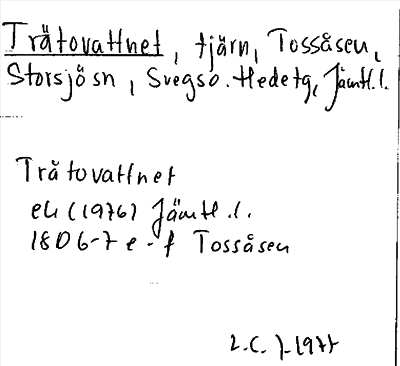 Tråtovattnet, tjärn, Tossåsen,
Storsjö sn, Svegs o. Hede tg, Jämtl. l.
Tråtovattnet
ek (1976) Jämtl. l.
18D 6-7 e-f Tossåsen
L.C. 1977